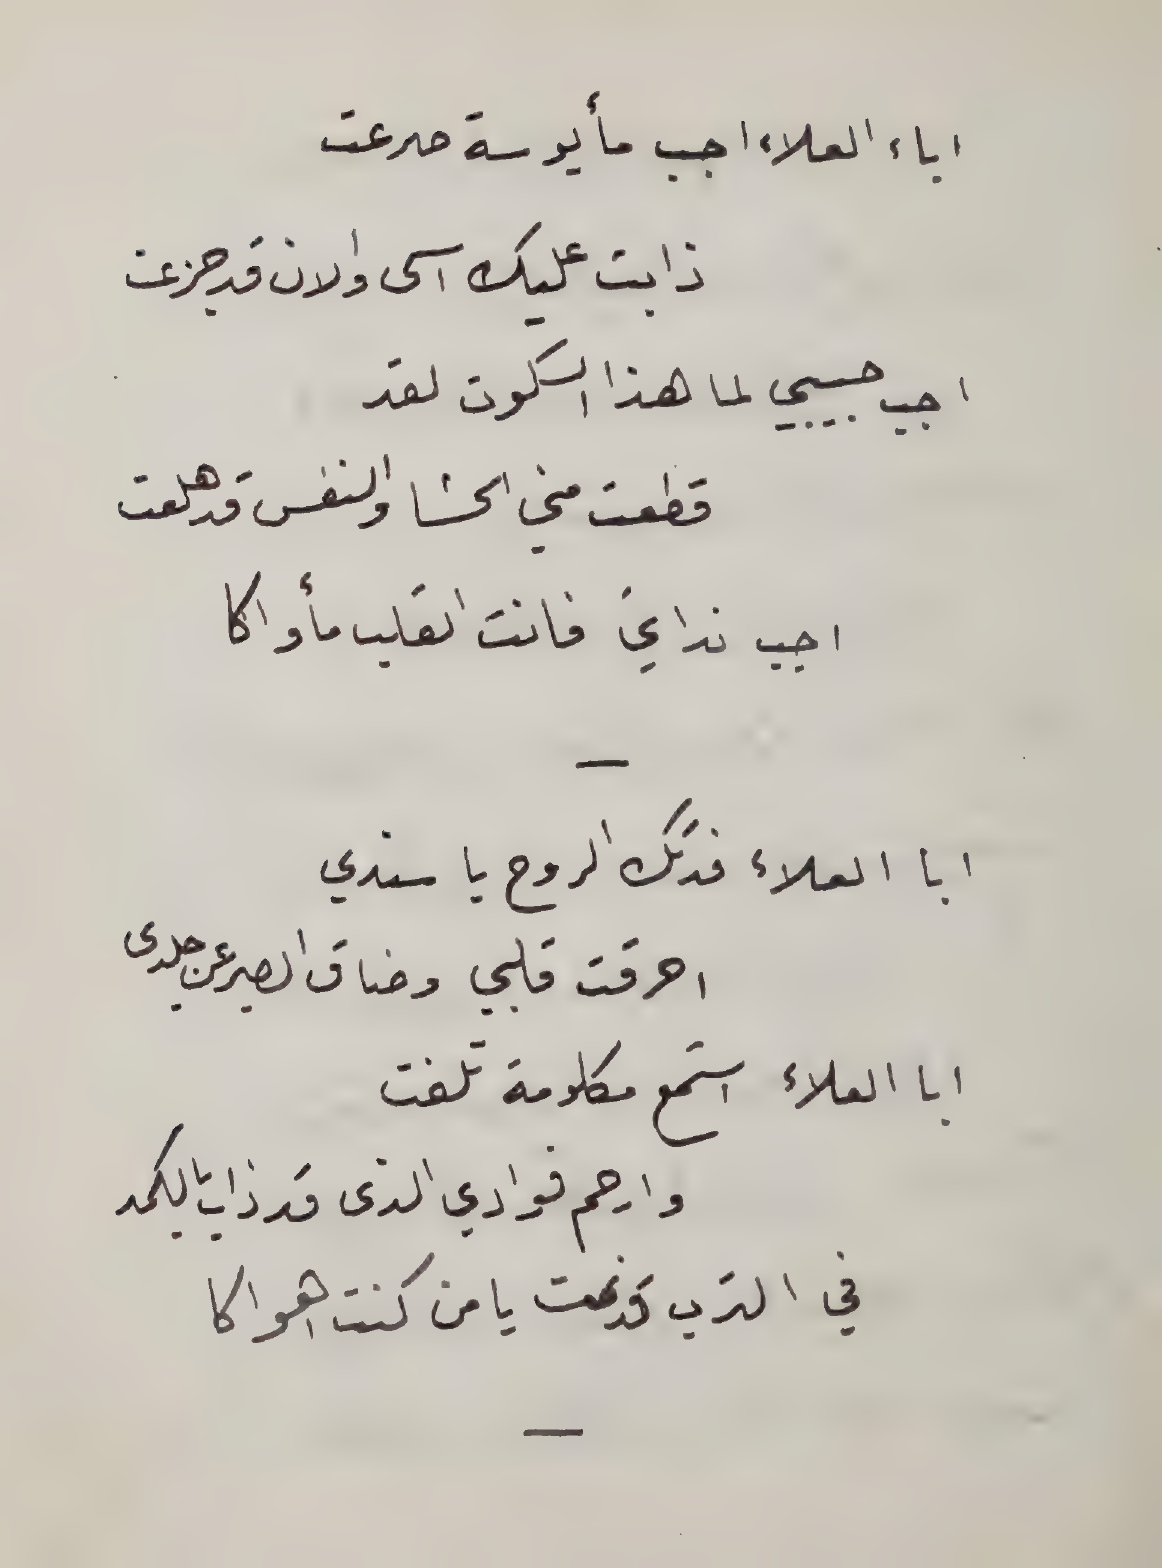 اباء العلاء اجب مأيوسة صرعت
ذابت عليك اسى والان قد جزعت
اجب حبيبي لما هذا السكوت لقد
قطعت مني الحشا والنفس قد هلعت
اجب نداي فانت القلب مأواكا
—
ابا العلاء فدتك الروح يا سندي
احرقت قلبي وضاق الصبر عن جلدى
ابا العلاء استمع مكلومة تلفت
وارحم فوادي الذى قد ذاب بالكمد
في الترب قد نمت يا من كنت اهواكا
—